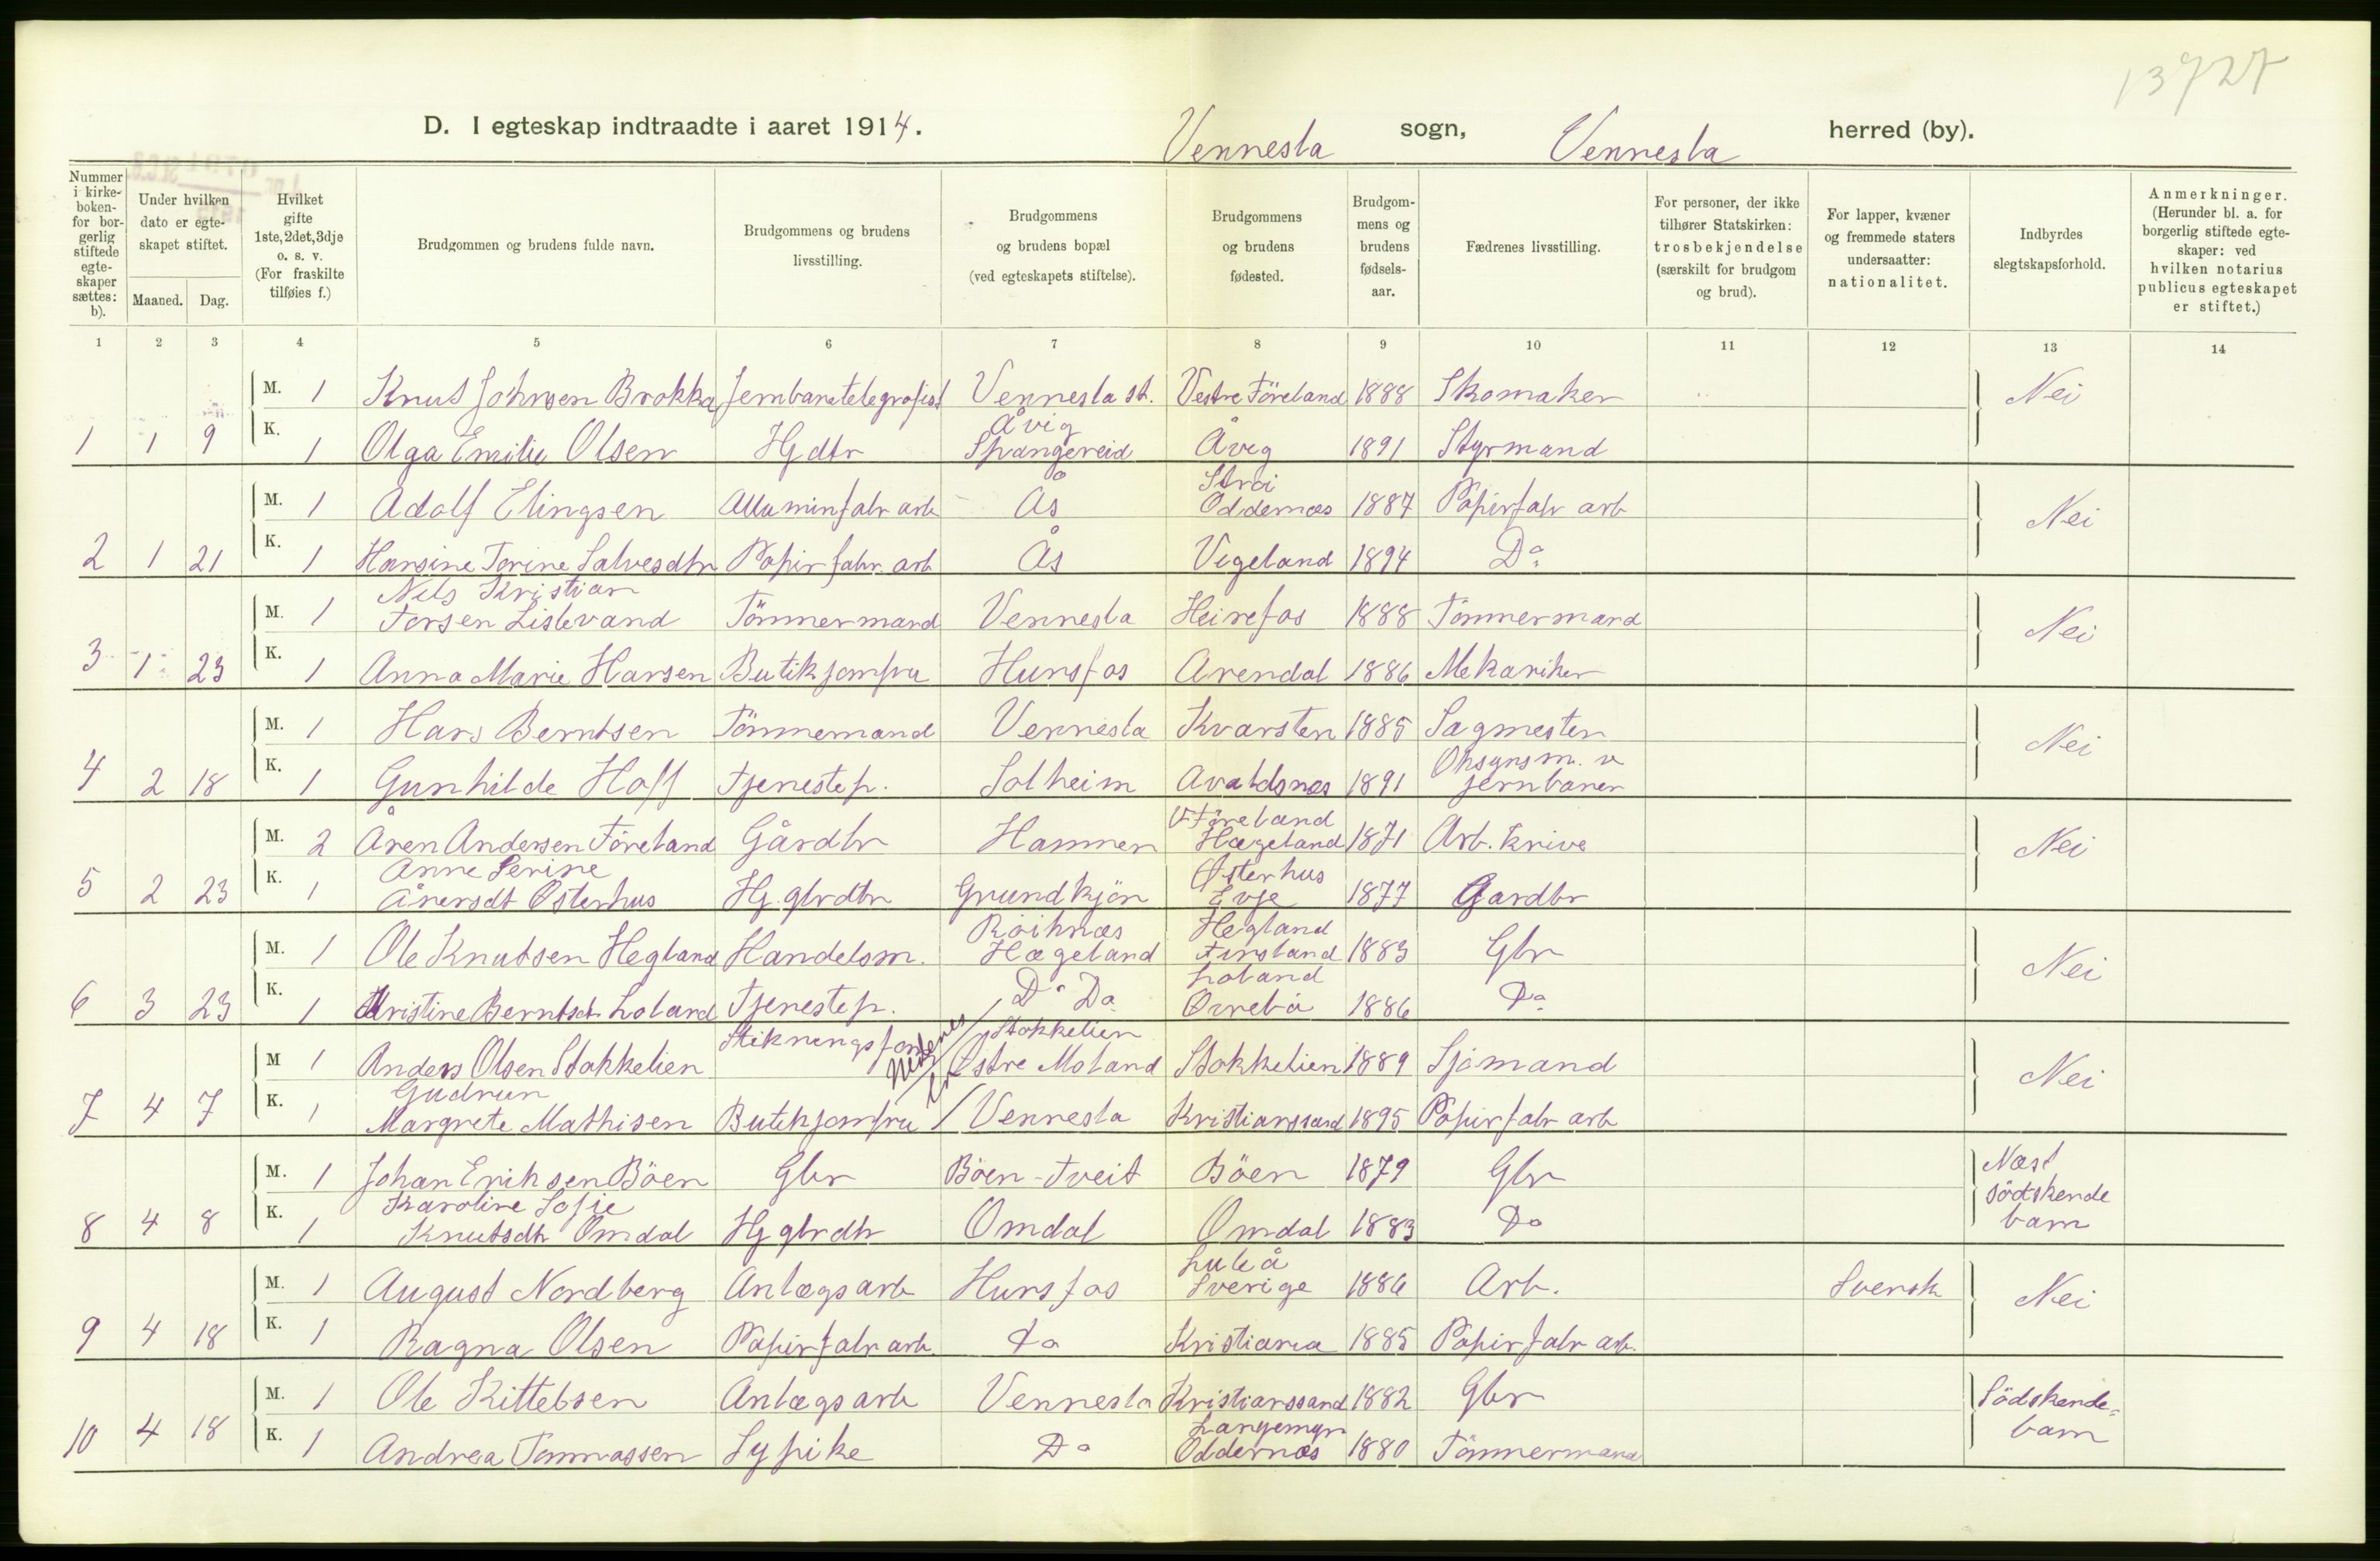 13727
D. I egteskap indtraadte i aaret 1914. Vennesla sogn, Vennesla herred (by).
Nummer i kirkeboken- for borgerlig stiftede egteskaper sættes: b).
Under hvilken dato er egteskapet stiftet. Maaned. Dag.
Hvilket gifte 1ste, 2det, 3dje o. s. v. (For fraskilte tilføies f.)
Brudgommen og brudens fulde navn.
Brudgommens og brudens livsstilling.
Brudgommens og brudens bopæl (ved egteskapets stiftelse).
Brudgommens og brudens fødested.
Brudgommens og brudens fødselsaar.
Fædrenes livsstilling.
For personer, der ikke tilhører Statskirken: trosbekjendelse (særskilt for brudgom og brud).
For lapper, kvæner og fremmede staters undersaatter: nationalitet.
Indbyrdes slegtskapsforhold.
Anmerkninger. (Herunder bl. a. for borgerlig stiftede egteskaper: ved hvilken notarius publicus egteskapet er stiftet.)
1 2 3 4 5 6 7 8 9 10 11 12 13 14
M. 1 Knut Johnsen Brokka Jernbanetelegrafist Vennesla st. Vestre Föreland 1888 Skomaker Nei
1 1 9 K. 1 Olga Emilie Olsen Hgdtr Åvig Spangereid Åvig 1891 Styrmand
M. 1 Adolf Elingsen Alluminfabr arb Ås Strai Oddernæs 1887 Papirfabr arb Nei
2 1 21 K. 1 Hansine Torine Salvesdtr Papirfabr. arb Ås Vigeland 1894 Do
M. 1 Nils Kristian Torsen Lislevand Tömmermand Vennesla Heirefos 1888 Tömmermand Nei
3 1 23 K. 1 Anna Marie Hansen Butikjomfru Hunsfos Arendal 1886 Mekaniker
M. 1 Hans Berntsen Tömmemand Vennesla Kvarsten 1885 Sagmester Nei
4 2 18 K. 1 Gunhilde Hoff Tjenestep. Solheim Avaldsnæs 1891 Opsynsm. v jernbanen
M. 2 Ånen Andersen Föreland Gårdbr Hammen V Föreland Hægeland 1871 Arb. Krive Nei
5 2 23 K. 1 Anne Serine Ånensdt Østerhus Hg. gbrdtr Grundkjön Østerhus Evje 1877 Gardbr
M. 1 Ole Knutsen Hegland Handelsm. Röiknæs Hægeland Hegland Finsland 1883 Gbr Nei
6 3 23 K. 1 Kristine Berntsdt Loland Tjenestep. Do Do Loland Øvrebö 1886 Do
M 1 Anders Olsen Stokkelien Stokkelien Østre Moland Stokkelien 1889 Sjömand Nei
7 4 7 K. 1 Gudrun Margrete Mathisen Butikjomfru Vennesla Kristianssand 1895 Papirfabr arb
M. 1 Johan Eriksen Böen Gbr Böen - Tveit Böen 1879 Gbr Næst södskende barn
8 4 8 K. 1 Karoline Sofie Knutsdtr Omdal Hg gbrdtr Omdal Omdal 1883 Do
M. 1 August Nordberg Anlægsarb Hunsfos Luleå Sverige 1886 Arb. Svensk Nei
9 4 18 K. 1 Ragna Olsen Papirfabr arb. Do Kristiania 1885 Papirfabr arb.
M. 1 Ole Kittelsen Anlægsarb Vennesla Kristianssand 1882 Gbr Södskende=barn
10 4 18 K. 1 Andrea Tommassen Sypike Do Langemyr Oddernæs 1880 Tömmermand